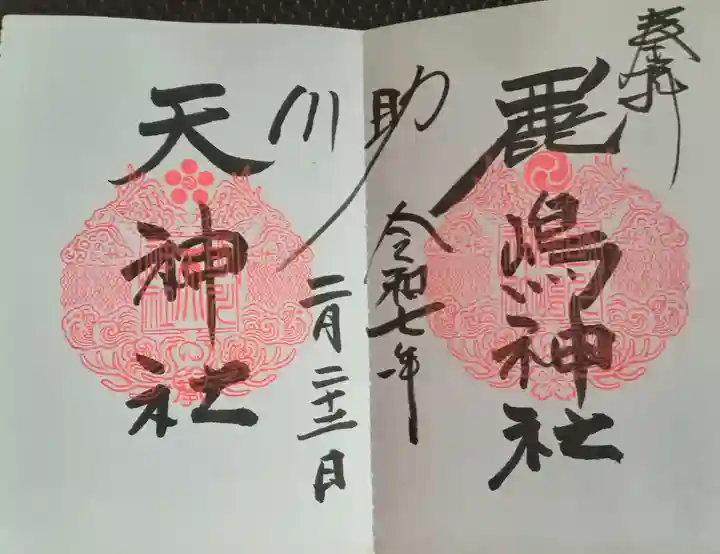 奉拝
鹿嶋神社
助川
令和七年
二月二十二日
天神社